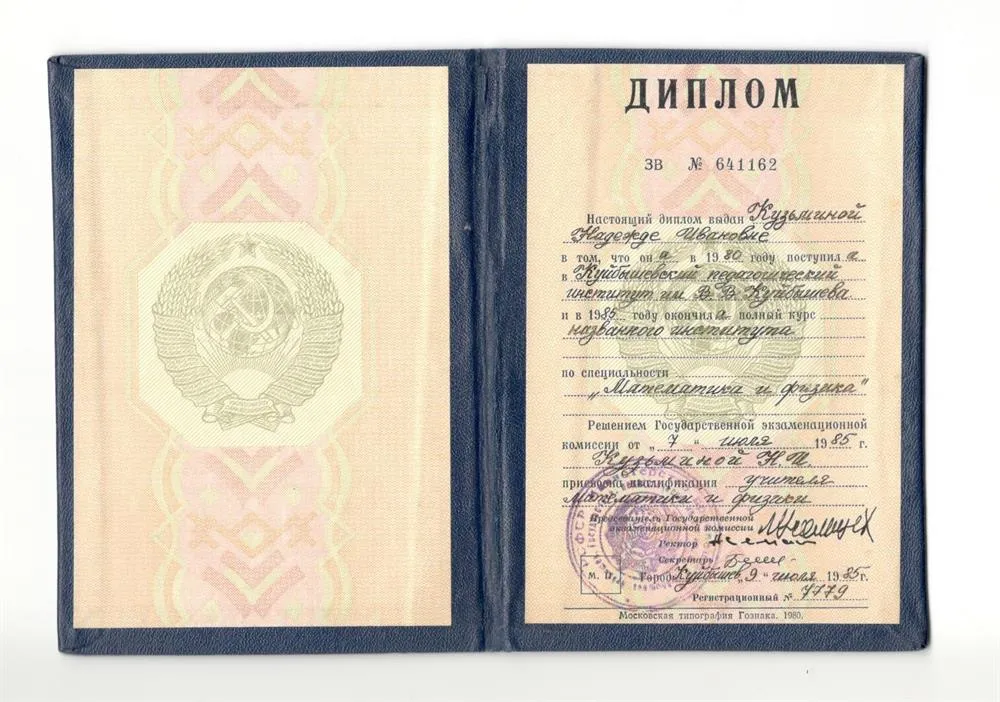 ДИПЛОМ
ЗВ № 641162
Настоящий диплом выдан Кузьминой
Надежде Ивановне
в том, что он а в 1980 году поступил а
в Куйбышевский педагогический
институт им. В. В. Куйбышева
и в 1985 году окончил а полный курс
названного института
по специальности
„Математика и физика"
Решением Государственной экзаменационной
комиссии от „7" июля 1985 г.
Кузьминой Н. И.
присвоена квалификация учителя
математики и физики
Председатель Государственной
экзаменационной комиссии
Ректор
Секретарь
М. П. Город Куйбышев „9" июля 1985 г.
Регистрационный № 7779
Московская типография Гознака. 1980.